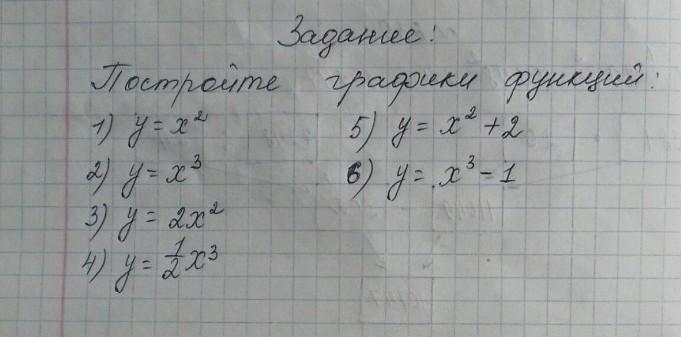 Задание:
Постройте графики функций:
1) y = x²
2) y = x³
3) y = 2x²
4) y = 1/2 x³
5) y = x² + 2
6) y = x³ - 1